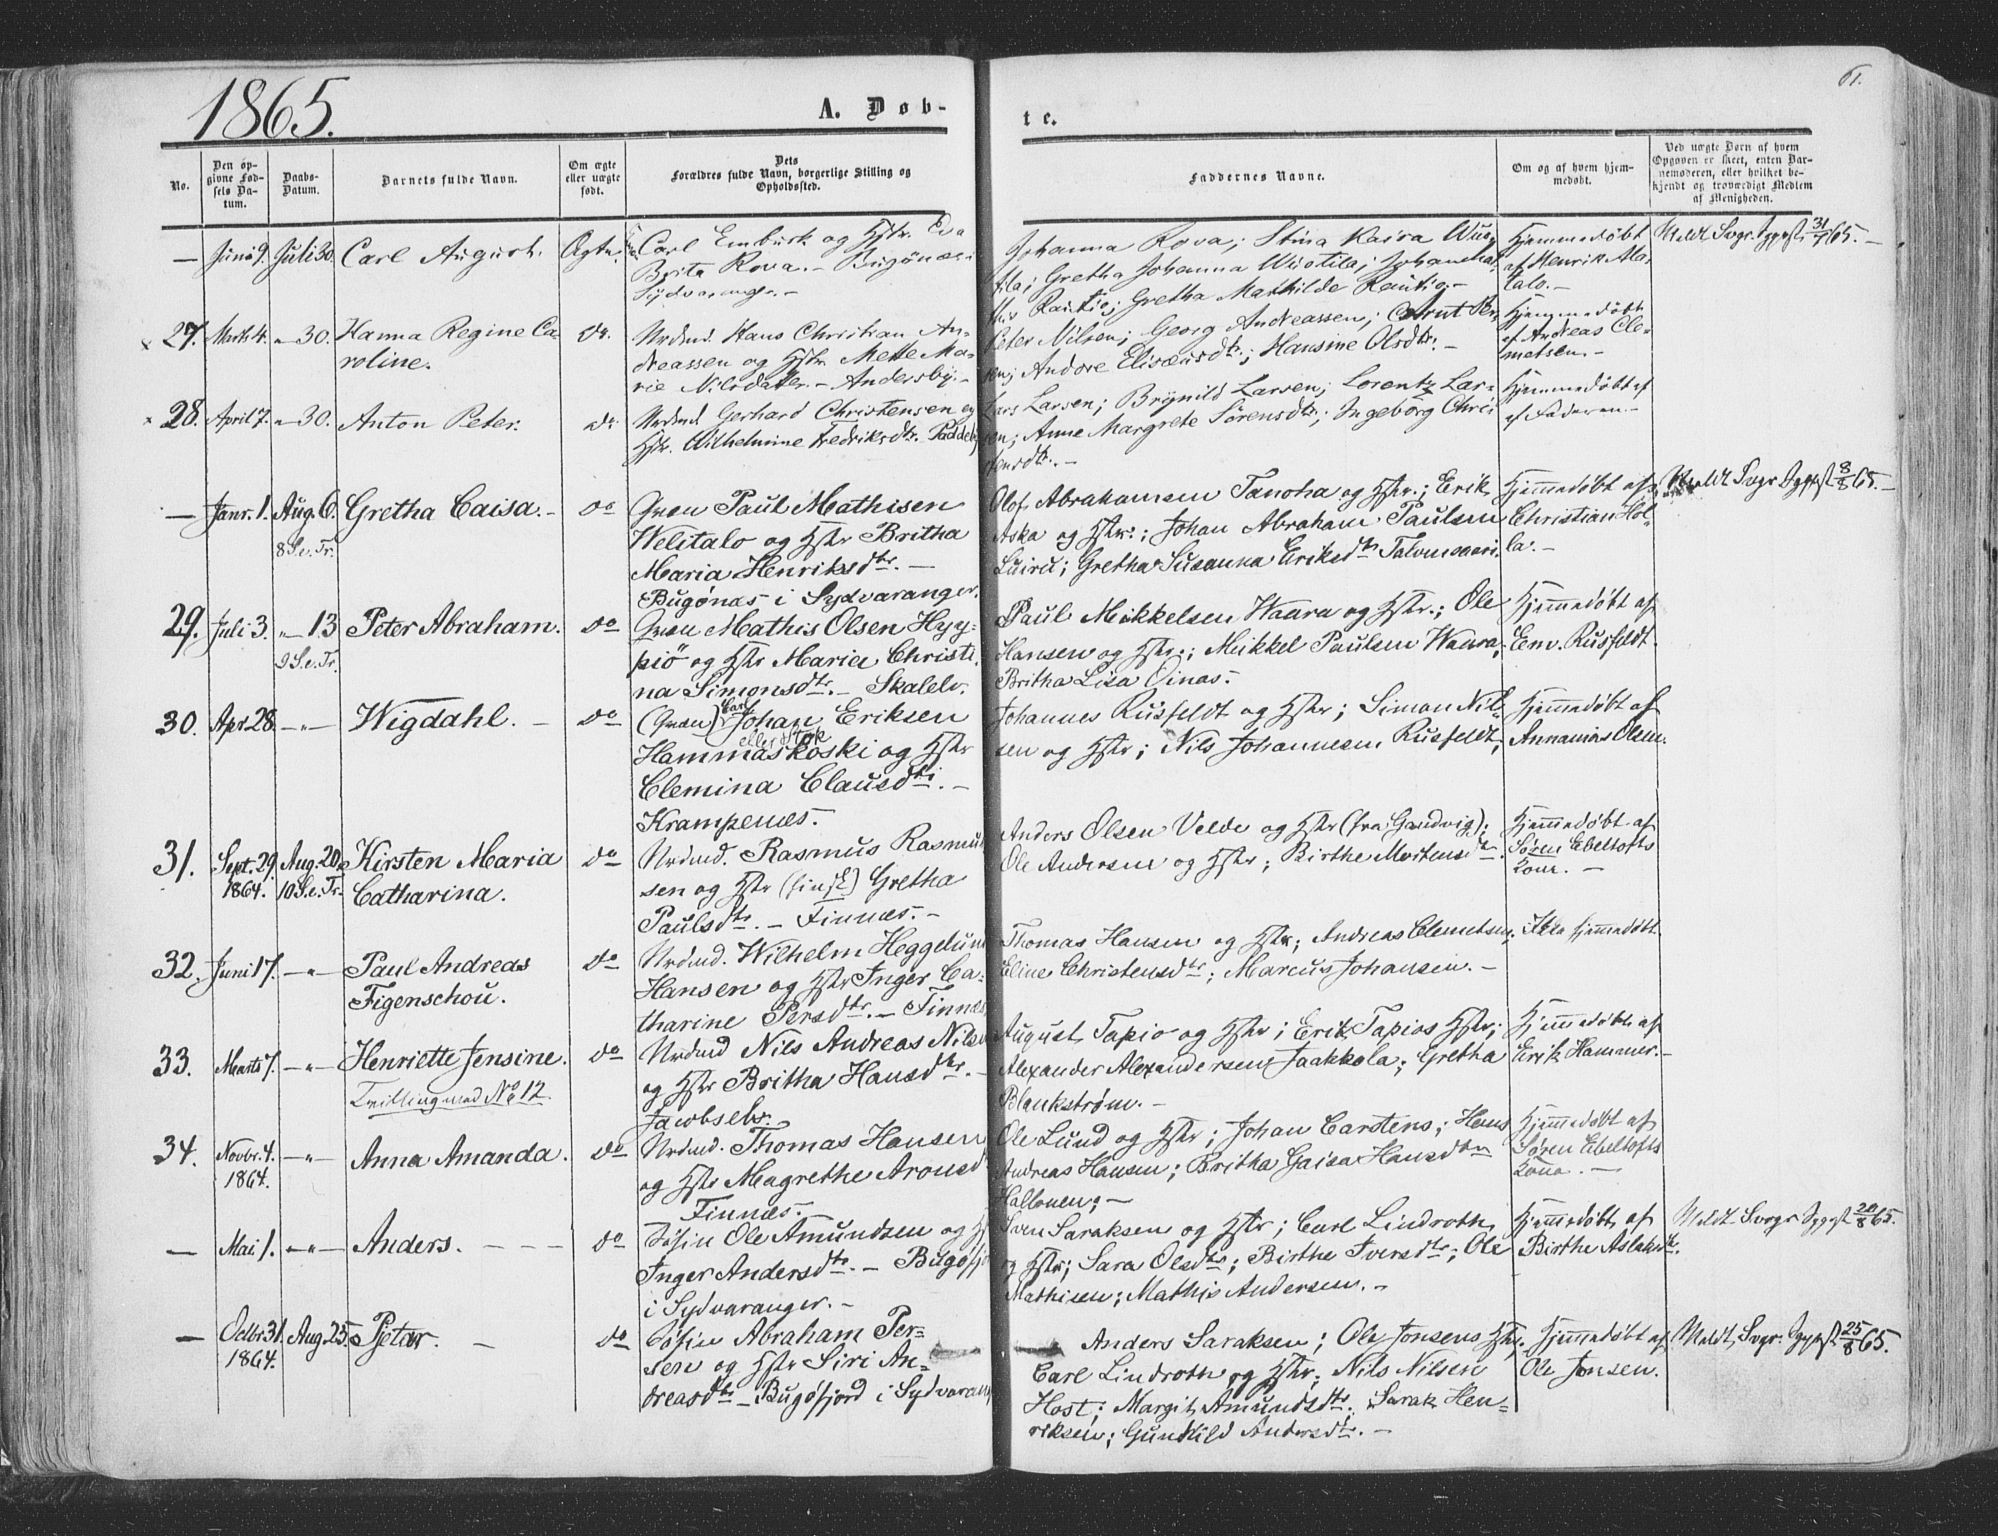 1865.
A. Døb-
te.
61.
No.
Den op-
givne Fød-
sels Da-
tum.
Daabs-
Datum.
Barnets fulde Navn.
Om ægte
eller uægte
født.
Dets
Forældres fulde Navn, borgerlige Stilling og
Opholdssted.
Faddernes Navne.
Om og af hvem hjem-
medøbt.
Ved uægte Børn af hvem
Opgaven er skeet, enten Bar-
nemoderen, eller hvilket be-
kjendt og troværdigt Medlem
af Menigheden.
— Juni 9. Juli 30. Carl August. Ægte.
Carl Embusk og Hstr. Eva
Brita Rova. — Bugønæs i
Sydvaranger. —
Johanna Rova; Stina Kaisa Wuo-
tila; Gretha Johanna Wuotila; Johan Mat-
his Rautio; Gretha Mathilde Rautio. —
Hjemmedøbt
af Henrik Ala-
talo. —
Meldt Sogr. Sygst. 31/7 65. —
27. Marts 4. " 30. Hanna Regine Ca-
roline.
do.
Nrdmd. Hans Christian An-
dreassen og Hstr. Mette Ma-
rie Nilsdatter. — Andersby. —
Peter Nilsen; Georg Andreassen; Per-
sen; Andore Elisæusdtr.; Hansine Olsdtr. —
Hjemmedøbt
af Andreas Cle-
metsen. —
28. April 7. " 30. Anton Peter. do.
Nrdmd. Gerhard Christensen og
Hstr. Wilhelmine Fredriksdtr. Paddeby
Lars Larsen; Brynild Larsen; Lorentz Lar-
sen; Anne Margrete Sørensdtr.; Ingeborg Chris-
tensdtr. —
Hjemmedøbt af
af Faderen. —
— Janr. 1. Aug. 6.
8 S. e. Tr.
Gretha Caisa. — do
Qvæn Paul Mathisen
Welitalo og Hstr Britha
Maria Henriksdtr. —
Bugønæs i Sydvaranger.
Olof Abrahamsen Tanoha og Hstr.; Erik
Aska og Hstr.; Johan Abraham Paulsen
Luiro; Gretha Susanna Eriksdtr Talvensaari.
Hjemmedøbt af
Christian Hol-
la. —
Meldt Sogr. Sygst 8/8 65. —
29. Juli 3. " 13
9 S. e. Tr.
Peter Abraham. do
Qvæn Mathis Olsen Hyy-
piö og Hstr Maria Christi-
na Simonsdtr. — Skalelv.
Paul Mikkelsen Waara og Hstr.; Ole
Hansen og Hstr.; Mikkel Paulsen Waara;
Britha Lisa Oinas.
Hjemmedøbt af
Em. Rusfeldt.
30. Apr. 28. — " — Wigdahl. — do
(Qvæn) Carl Johan Eriksen
eller Stok
Hammaskoski og Hstr
Clemina Clausdtr. —
Krampenæs.
Johannes Rusfeldt og Hstr; Simon Nil-
sen og Hstr; Nils Johannesen Rusfeldt;
Hjemmedøbt af
Annanias Olsen.
31. Sept. 29.
1864.
Aug. 20.
10 S. e. Tr.
Kirsten Maria
Catharina.
do
Nrdmd. Rasmus Rasmus
sen og Hstr (finsk) Gretha
Paulsdtr. — Finnæs. —
Anders Olsen Velde og Hstr (fra Gandvig);
Ole Andersen og Hstr; Birthe Mortensdtr.
Hjemmedøbt af
Søren Ebeltofts
Kone. —
32. Juni 17. — " — Paul Andreas
Figenschou.
do
Nrdmd. Wilhelm Heggelund
Hansen og Hstr Inger Ca-
tharine Persdtr. — Finnæs.
Thomas Hansen og Hstr; Andreas Clemetsen;
Eline Christensdtr; Marcus Johansen. —
Ikke hjemmedøbt.
33. Marts 7. — " — Henriette Jensine.
Tvilling med No 12.
do
Nrdmd Nils Andreas Nilsen
og Hstr Britha Hansdtr. —
Jacobselv.
August Tapio og Hstr; Erik Tapios Hstr;
Alexander Alexandersen Jaakkola; Gretha
Blankstrøm. —
Hjemmedøbt af
Erik Hammer. —
34. Novbr. 4.
1864.
— " — Anna Amanda. do
Nrdmd. Thomas Hansen
og Hstr Magrethe Aronsdtr
Finnæs. —
Ole Lund og Hstr; Johan Carstens; Hans
Andreas Hansen; Britha Caisa Hansdtr
Hallonen; —
Hjemmedøbt af
Søren Ebeltofts
Kone. —
— Mai 1. — " — Anders. — — — do
Søfin Ole Amundsen og Hstr
Inger Andersdtr. — Bugøfjord
i Sydvaranger. —
Sven Saraksen og Hstr; Carl Lindroth
og Hstr; Sara Olsdtr; Birthe Iversdtr; Ole
Mathisen; Mathis Andersen. —
Hjemmedøbt af
Birthe Aslaksdtr.
Meldt Sogr Sygst 20/8 65.
— Octbr 31.
1864.
Aug. 25. Pjetar. — do
Søfin Abraham Per-
sen og Hstr Siri An-
dreasdtr — Bugøfjord i Sydvarang
Anders Saraksen; Ole Jonsens Hstr;
Carl Lindroth og Hstr; Nils Nilsen
Hast; Margit Amundsdtr; Sarak Hen-
riksen; Gunhild Andersdtr. —
Hjemmedøbt af
Ole Jonsen.
Meldt Sogr. Sygst 25/8 65.